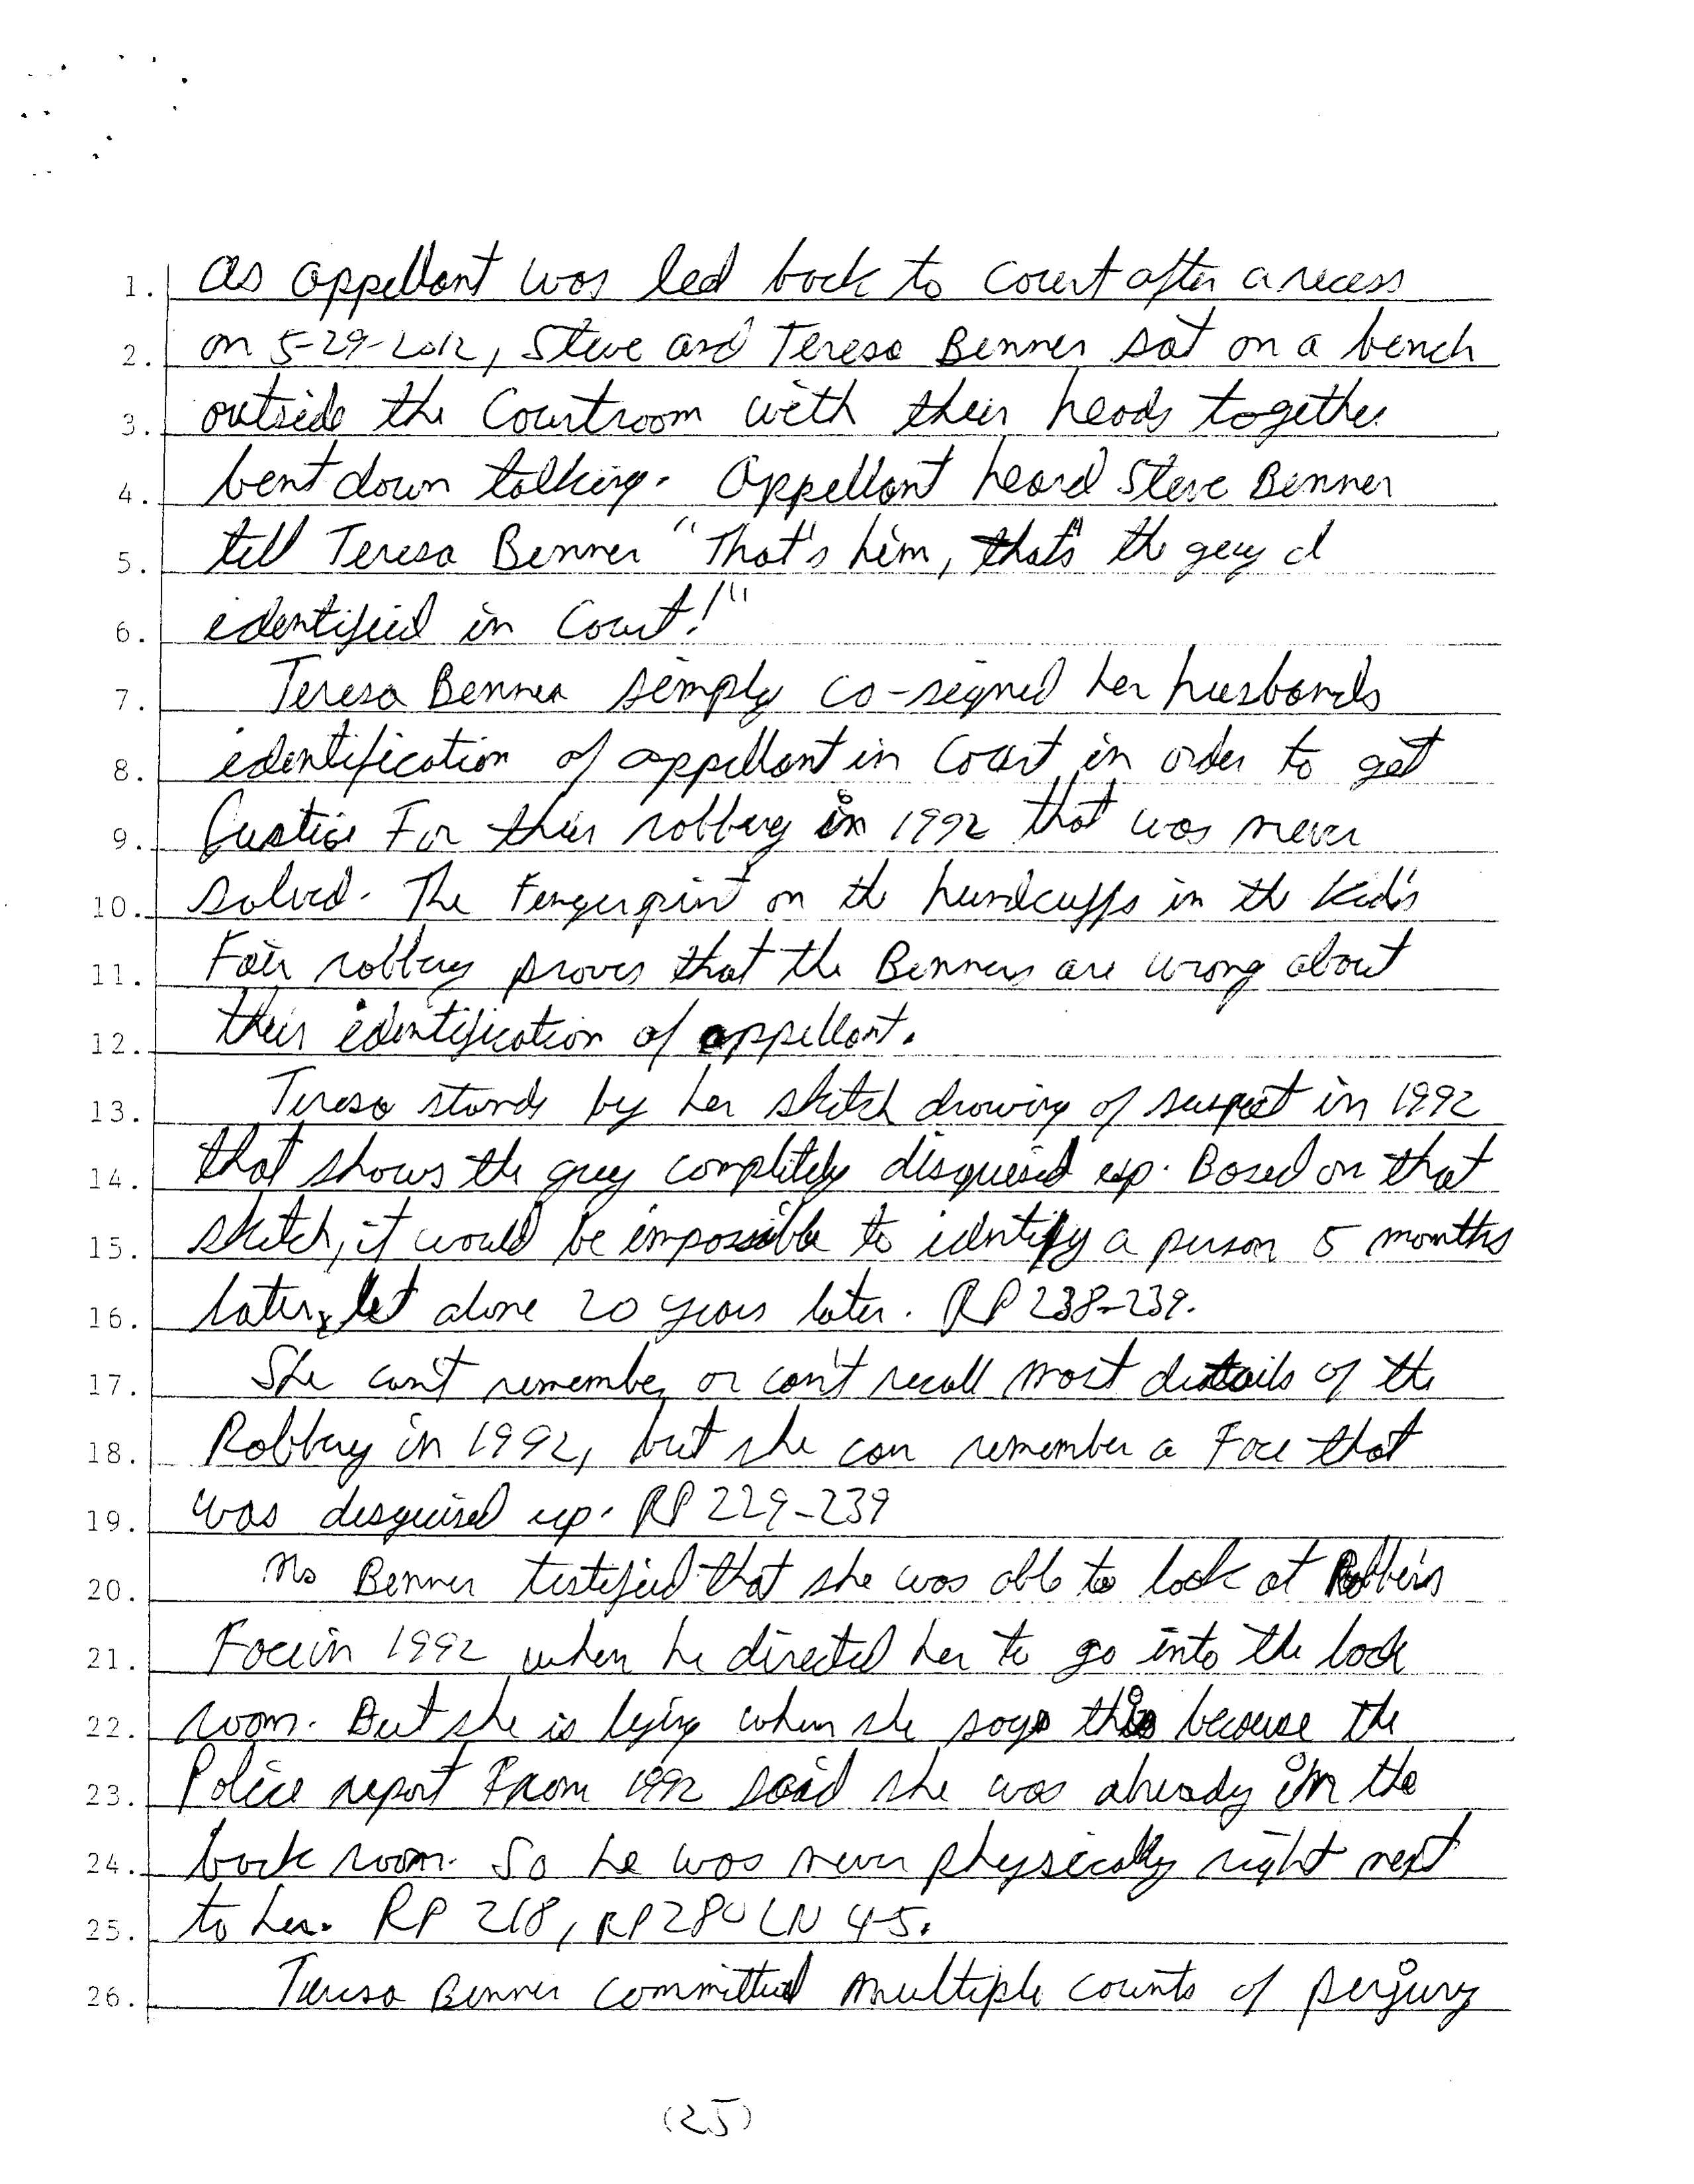 1. As appellant was led back to Court after a recess
2. on 5-29-2012, Steve and Teresa Benner sat on a bench
3. outside the Courtroom with their heads together
4. bent down talking. Appellant heard Steve Benner
5. tell Teresa Benner "That's him, that's the guy I
6. identified in Court!"
7. Teresa Benner simply co-signed her husbands
8. identification of appellant in Court in order to get
9. Justice For their robbery in 1992 that was never
10. solved. The Fingerprint on the handcuffs in the Kid's
11. Fair robbery proves that the Benners are wrong about
12. their identification of appellant.
13. Teresa stands by her sketch drawing of suspect in 1992
14. that shows the guy completely disguised up. Based on that
15. sketch, it would be impossible to identify a person 5 months
16. later, let alone 20 years later. RP 238-239.
17. She can't remember or can't recall most details of the
18. Robbery in 1992, but she can remember a Face that
19. was disguised up. RP 229-239
20. Ms Benner testified that she was able to look at Robber's
21. Face in 1992 when he directed her to go into the back
22. room. But she is lying when she says this because the
23. Police report From 1992 said she was already in the
24. back room. So he was never physically right next
25. to her. RP 218, RP 280 LN 4-5.
26. Teresa Benner committed multiple counts of perjury
(25)